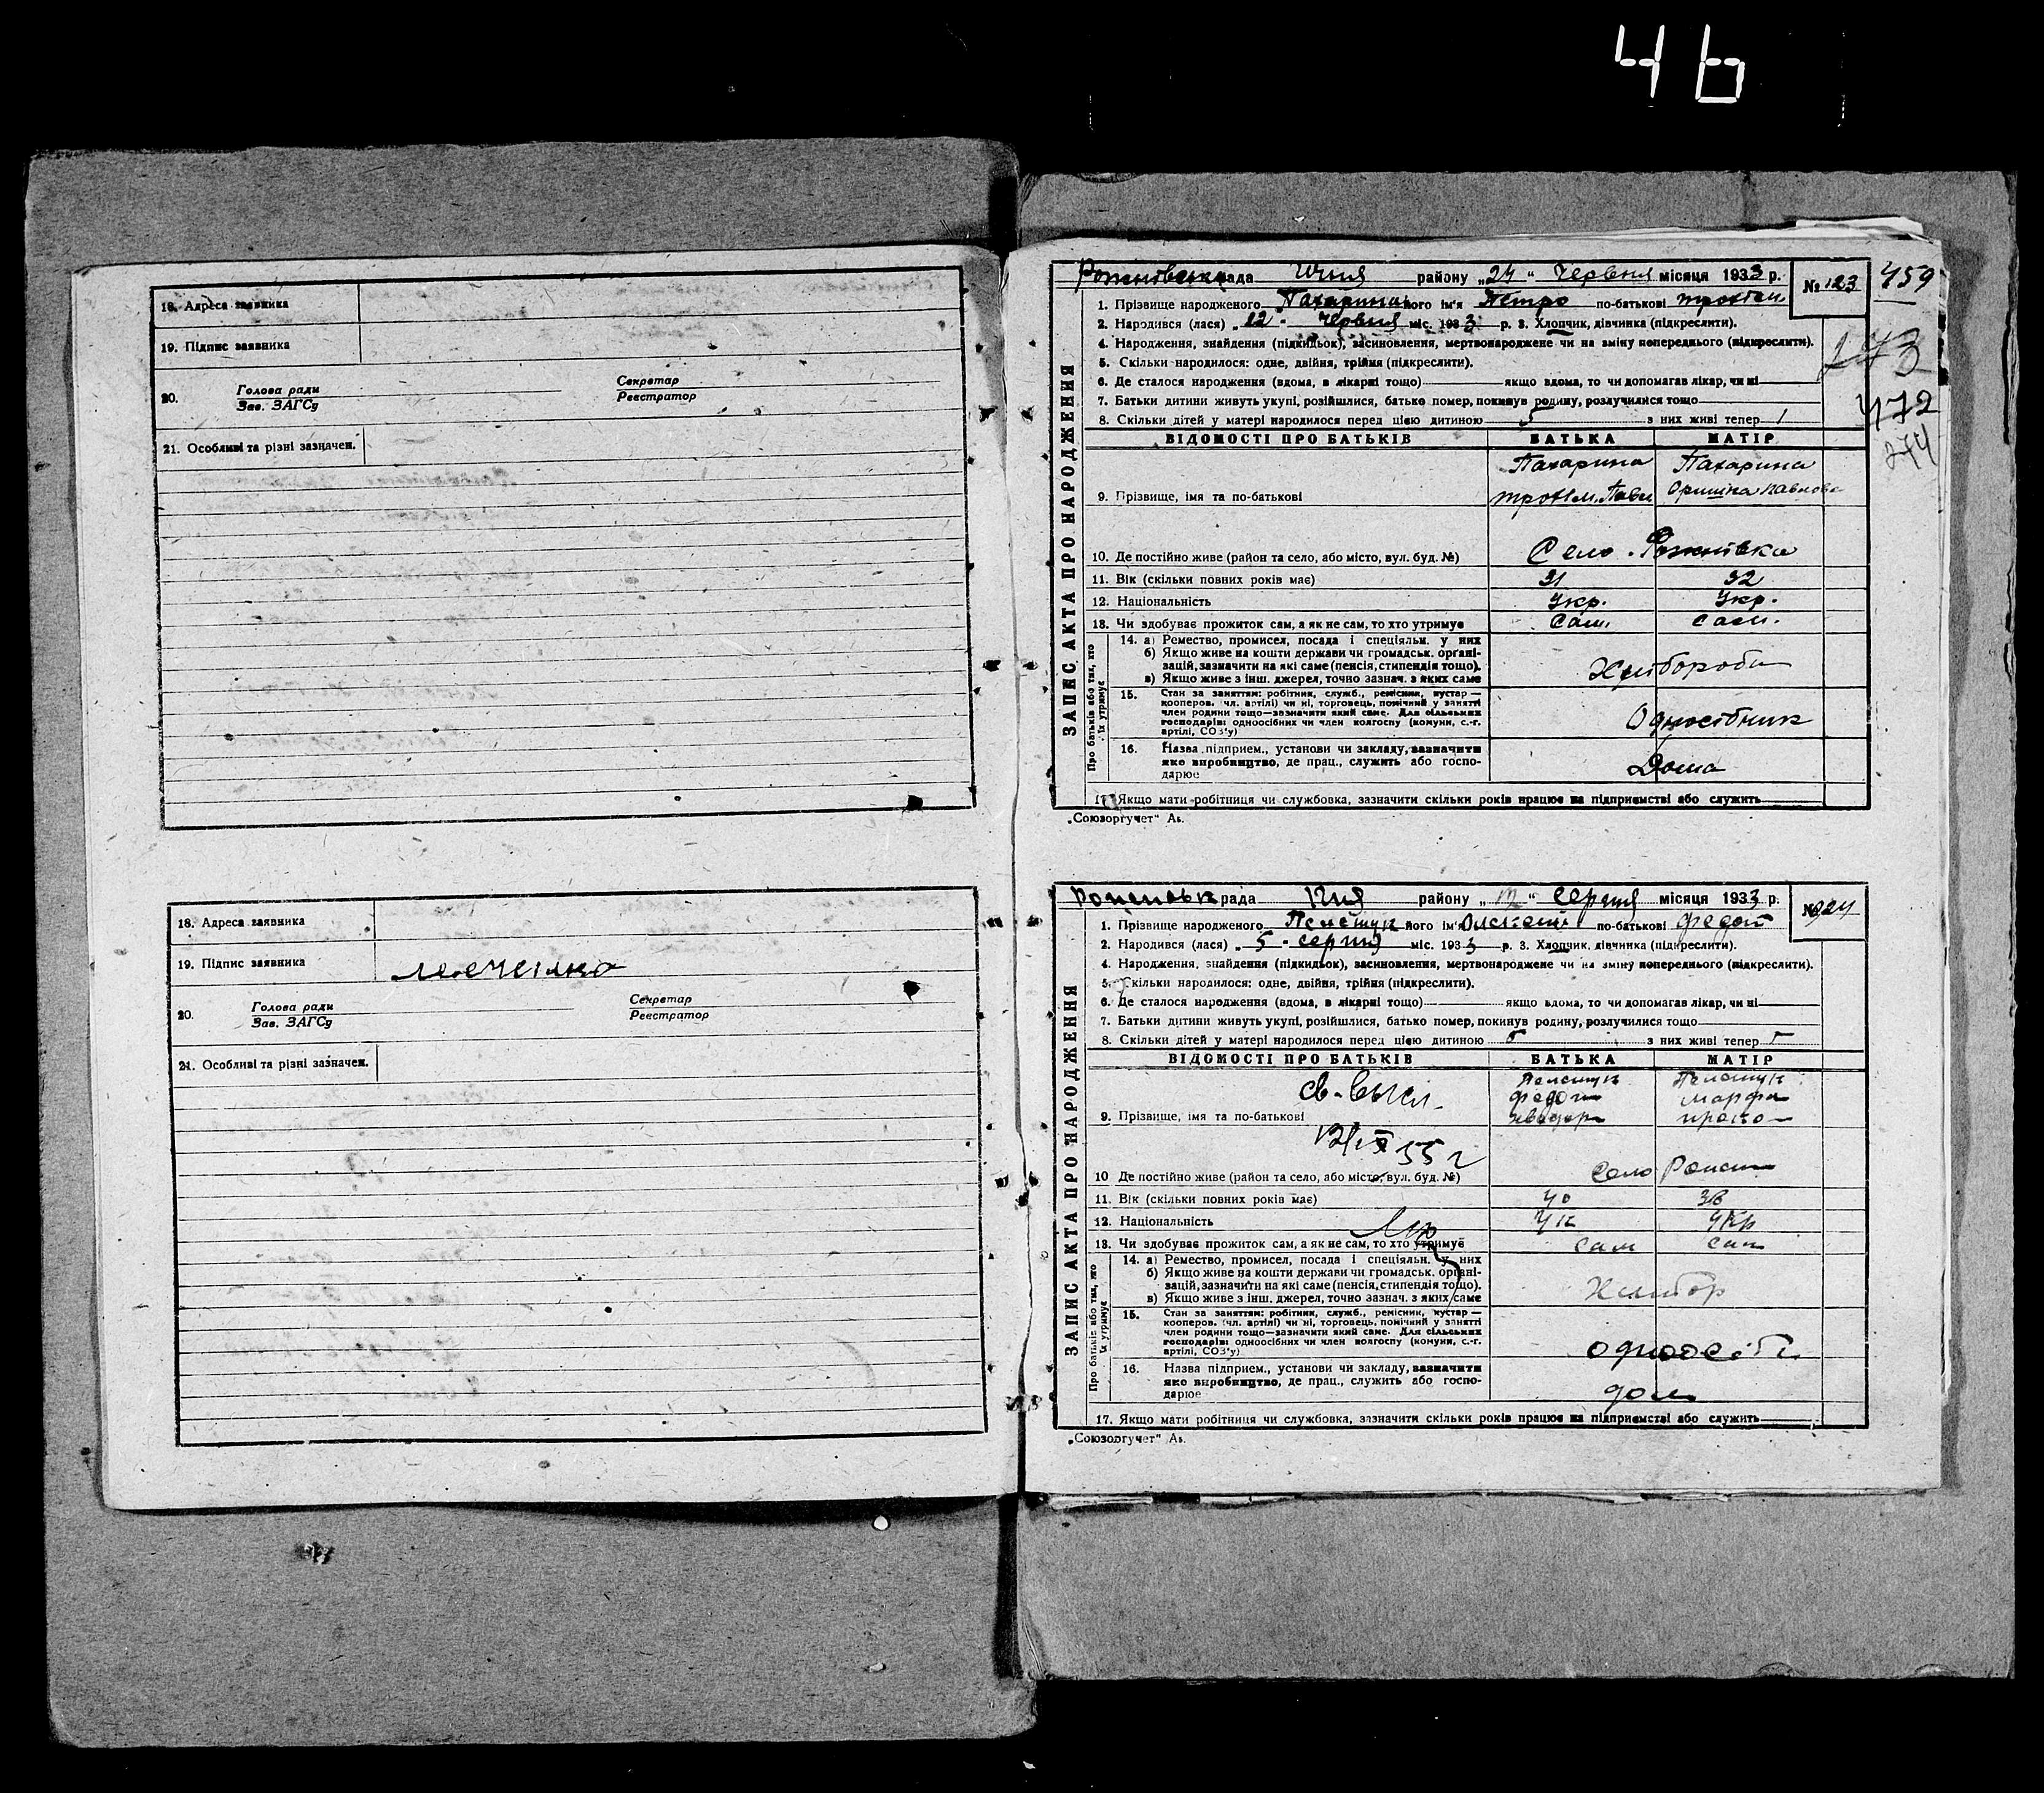 46
18. Адреса заявника
19. Підпис заявника
20. Голова ради Секретар
Зав. ЗАГСу Реєстратор
21. Особливі та різні зазначен.
18. Адреса заявника
19. Підпис заявника
20. Голова ради Секретар
Зав. ЗАГСу Реєстратор
21. Особливі та різні зазначен.
459
472
274
ЗАПИС АКТА ПРО НАРОДЖЕННЯ
рада Ічня району „24“ Червня місяця 1933 р. № 123
1. Прізвище народженого Пахарина його ім'я Петро по-батькові
2. Народився (лася) „12“ червня міс. 1933 р. 3. Хлопчик, дівчинка (підкреслити).
4. Народження, знайдення (підкидьок), засиновлення, мертвонароджене чи на зміну попереднього (підкреслити).
5. Скільки народилося: одне, двійня, трійня (підкреслити).
6. Де сталося народження (вдома, в лікарні тощо) якщо вдома, то чи допомагав лікар, чи ні
7. Батьки дитини живуть укупі, розійшлися, батько помер, покинув родину, розлучилися тощо
8. Скільки дітей у матері народилося перед цією дитиною 5 з них живі тепер 1
ВІДОМОСТІ ПРО БАТЬКІВ БАТЬКА МАТІР
Пахарина Пахарина
9. Прізвище, імя та по-батькові
10. Де постійно живе (район та село, або місто, вул. буд. №) Село Рожнівка
11. Вік (скільки повних років має) 31 32
12. Національність Укр. Укр.
13. Чи здобуває прожиток сам, а як не сам, то хто утримує Сам. Сам.
Про батьків або тих, хто їх утримує
14. а) Ремество, промисел, посада і спеціяльн. у них
б) Якщо живе на кошти держави чи громадськ. органі-
зацій, зазначити на які саме (пенсія, стипендія тощо).
в) Якщо живе з інш. джерел, точно зазнач. з яких саме
Хлібороби
15. Стан за заняттям: робітник, служб., ремісник, кустар —
кооперов. (чл. артілі) чи ні, торговець, помічний у занятті
член родини тощо—зазначити який саме. Для сільських
господарів: одноосібник чи член колгоспу (комуни, с.-г.
артілі, СОЗ'у)
Одноосібник
16. Назва підприєм., установи чи закладу, зазначити
яке виробництво, де прац., служить або госпо-
дарює
Дома
17. Якщо мати робітниця чи службовка, зазначити скільки років працює на підприємстві або служить
„Союзоргучет“
ЗАПИС АКТА ПРО НАРОДЖЕННЯ
рада району серпня місяця 1933 р. №
1. Прізвище народженого його ім'я по-батькові Федот
2. Народився (лася) „5“ серпня міс. 1933 р. 3. Хлопчик, дівчинка (підкреслити).
4. Народження, знайдення (підкидьок), засиновлення, мертвонароджене чи на зміну попереднього (підкреслити).
5. Скільки народилося: одне, двійня, трійня (підкреслити).
6. Де сталося народження (вдома, в лікарні тощо) якщо вдома, то чи допомагав лікар, чи ні
7. Батьки дитини живуть укупі, розійшлися, батько помер, покинув родину, розлучилися тощо
8. Скільки дітей у матері народилося перед цією дитиною з них живі тепер
ВІДОМОСТІ ПРО БАТЬКІВ БАТЬКА МАТІР
Марфа
9. Прізвище, імя та по-батькові
12/IX 55 г
10 Де постійно живе (район та село, або місто, вул. буд. №) Село
11. Вік (скільки повних років має) 40
12. Національність Ук Укр
13. Чи здобуває прожиток сам, а як не сам, то хто утримує сам сам
Про батьків або тих, хто їх утримує
14. а) Ремество, промисел, посада і спеціяльн. у них
б) Якщо живе на кошти держави чи громадськ. органі-
зацій, зазначити на які саме (пенсія, стипендія тощо).
в) Якщо живе з інш. джерел, точно зазнач. з яких саме
15. Стан за заняттям: робітник, служб., ремісник, кустар —
кооперов. (чл. артілі) чи ні, торговець, помічний у занятті
член родини тощо—зазначити який саме. Для сільських
господарів: одноосібник чи член колгоспу (комуни, с.-г.
артілі, СОЗ'у)
одноосіб
16. Назва підприєм., установи чи закладу, зазначити
яке виробництво, де прац., служить або госпо-
дарює
дом
17. Якщо мати робітниця чи службовка, зазначити скільки років працює на підприємстві або служить
„Союзоргучет“